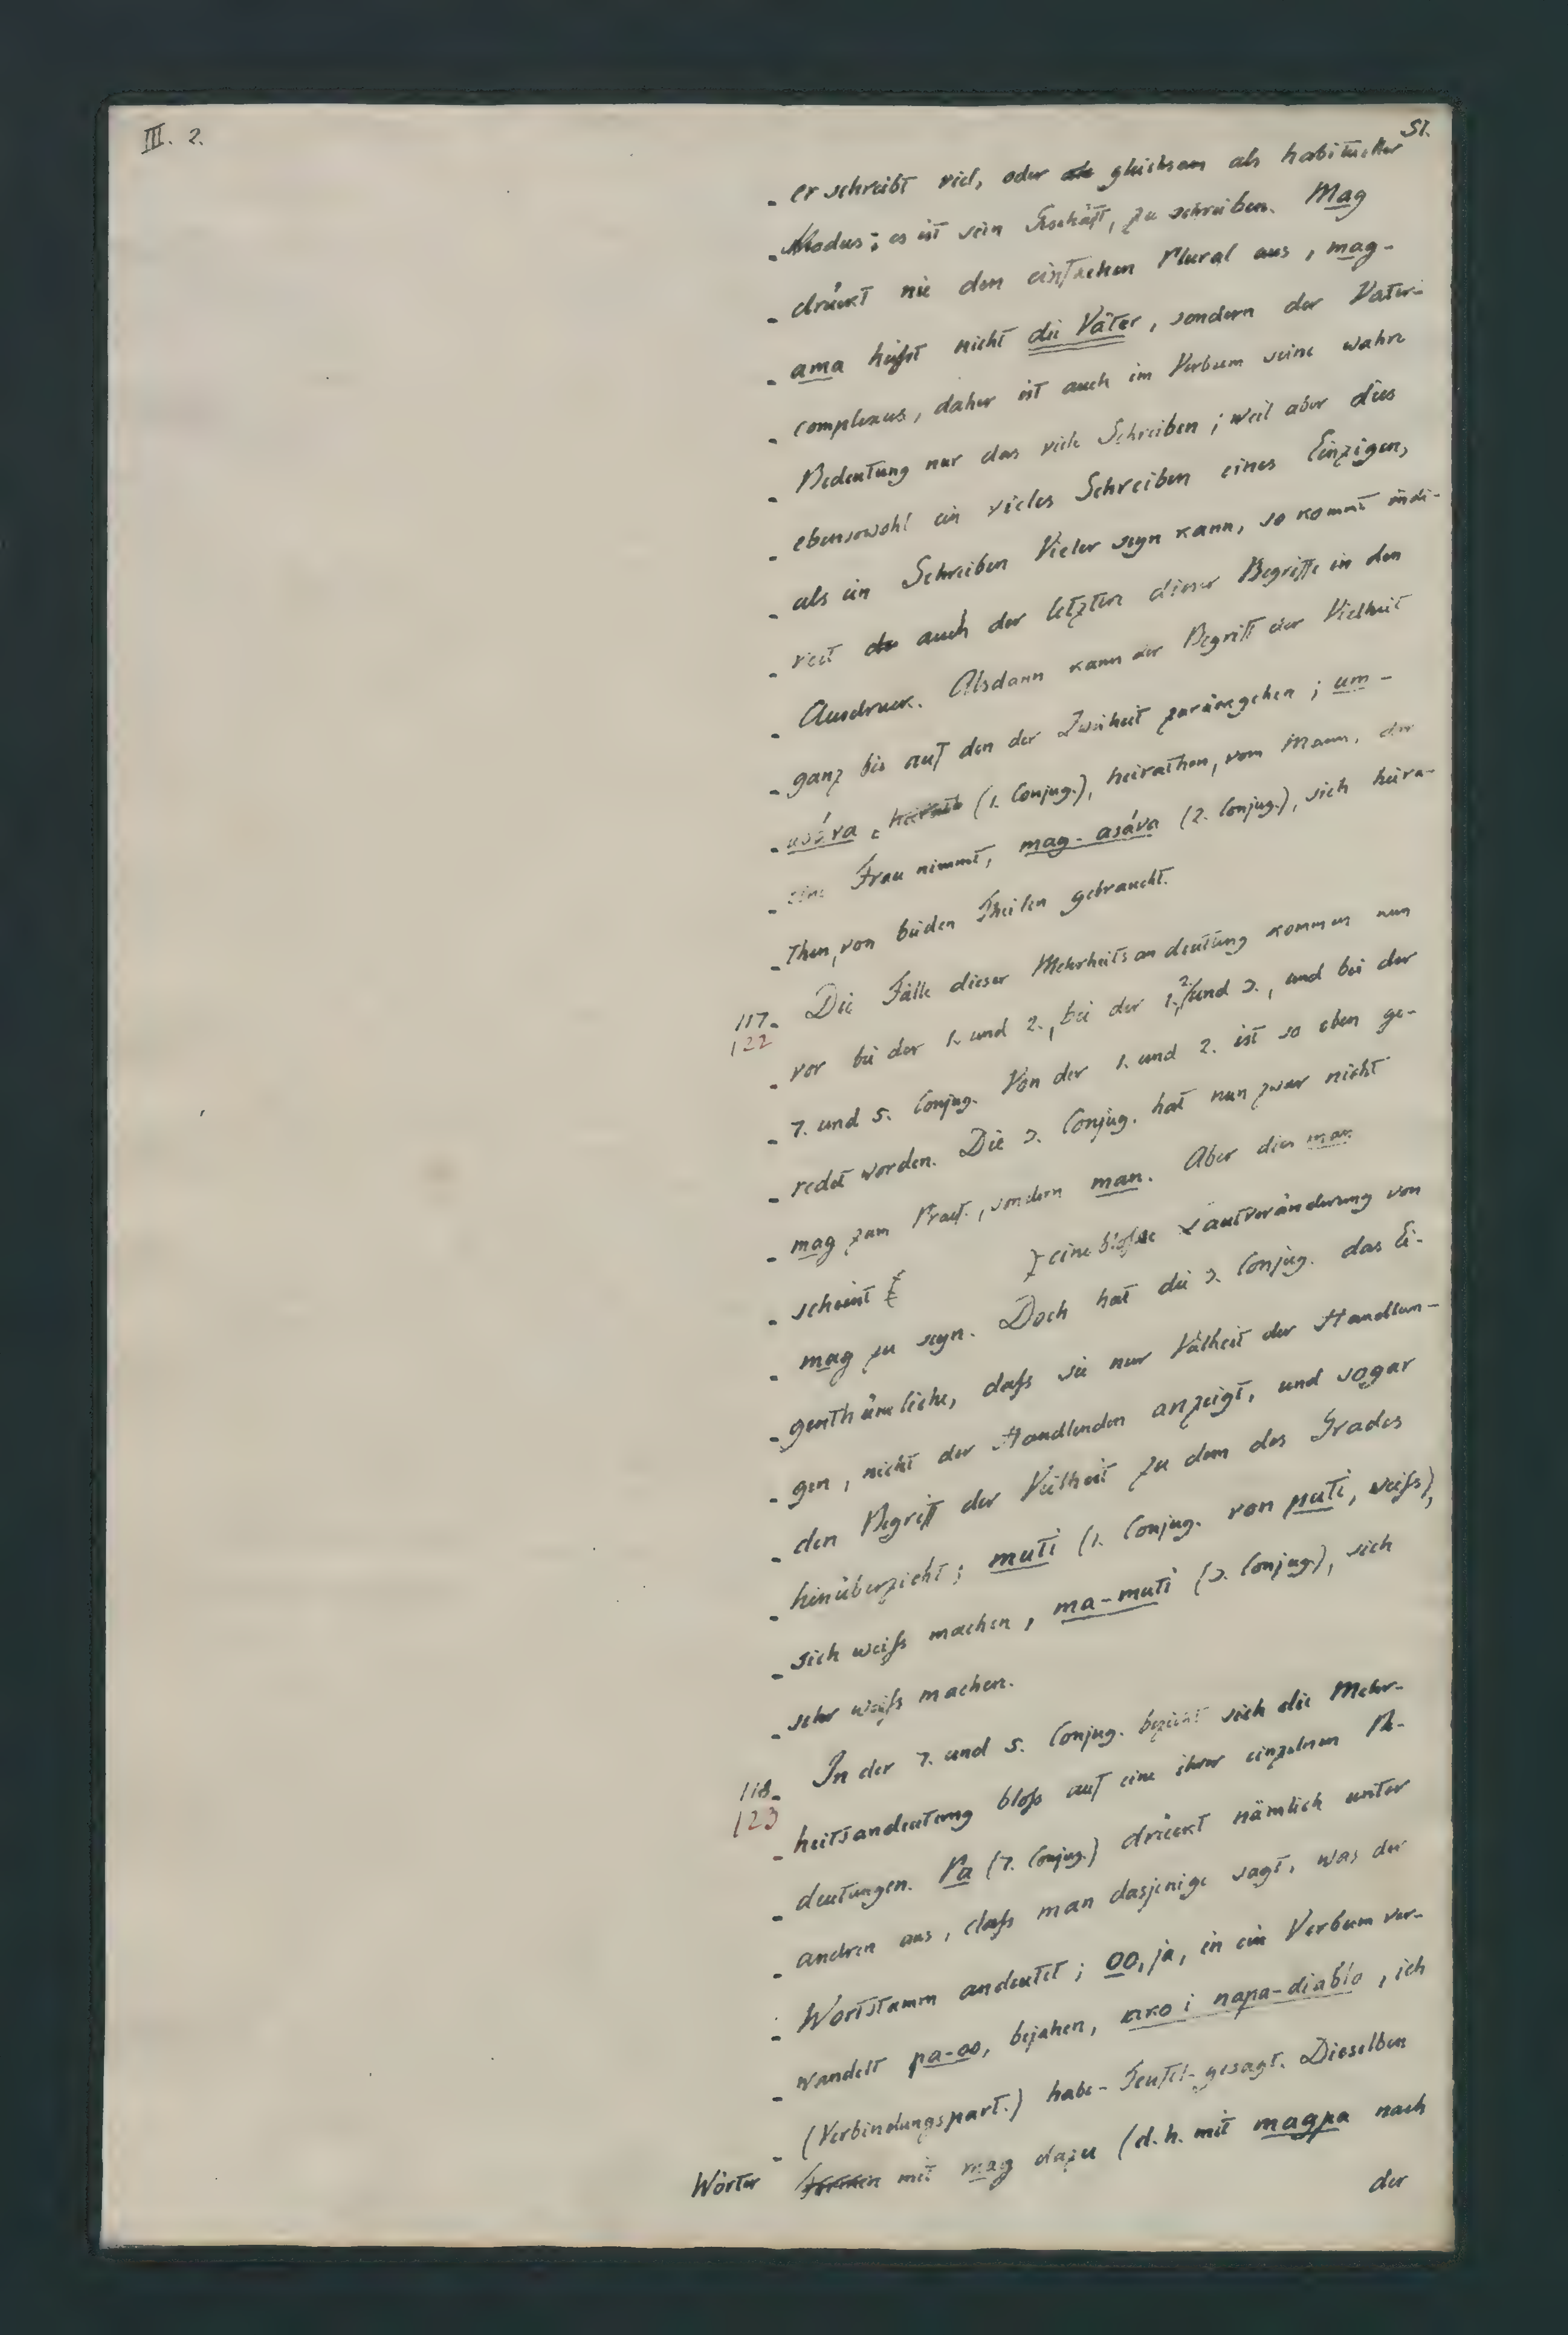 III. 2.
51.
er schreibt viel, oder gleichsam als habitueller
Modus; es ist sein Geschäft, zu schreiben. Mag
drückt nie den einfachen Plural aus, mag-
ama heißt nicht die Väter, sondern der Vater-
complexus, daher ist auch im Verbum seine wahre
Bedeutung nur das viele Schreiben; weil aber dies
ebensowohl ein vieles Schreiben eines Einzigen,
als ein Schreiben Vieler seyn kann, so kommt indi-
rect auch der letztere dieser Begriffe in den
Ausdruck. Alsdann kann der Begriff der Vielheit
ganz bis auf den der Zweiheit zurückgehen; um-
asáva, (1. Conjug.), heirathen, vom Mann, der
eine Frau nimmt, mag-asáva (2. Conjug.), sich heira-
then, von beiden Theilen gebraucht.
117. Die Fälle dieser Mehrheitsandeutung kommen nun
122
vor bei der 1. und 2., bei der 1. 2. und 3., und bei der
7. und 5. Conjug. Von der 1. und 2. ist so eben ge-
redet worden. Die 3. Conjug. hat nun zwar nicht
mag zum Praef., sondern man. Aber dies man
scheint eine bloße Lautveränderung von
mag zu seyn. Doch hat die 3. Conjug. das Ei-
genthümliche, daß sie nur Vielheit der Handlun-
gen, nicht der Handlenden anzeigt, und sogar
den Begriff der Vielheit zu dem des Grades
hinüberzieht; muti (1. Conjug. von puti, weiß),
sich weiß machen, ma-muti (3. Conjug.), sich
sehr weiß machen.
118. In der 7. und 5. Conjug. bezieht sich die Mehr-
123
heitsandeutung bloß auf eine ihrer einzelnen Be-
deutungen. Pa (7. Conjug.) drückt nämlich unter
andren aus, daß man dasjenige sagt, was der
Wortstamm andeutet; oo, ja, in ein Verbum ver-
wandelt pa-oo, bejahen, ako i napa-diablo, ich
(Verbindungspart.) habe-Teufel-gesagt. Dieselben
Wörter Formen mit mag dazu (d.h. mit magpa nach
der